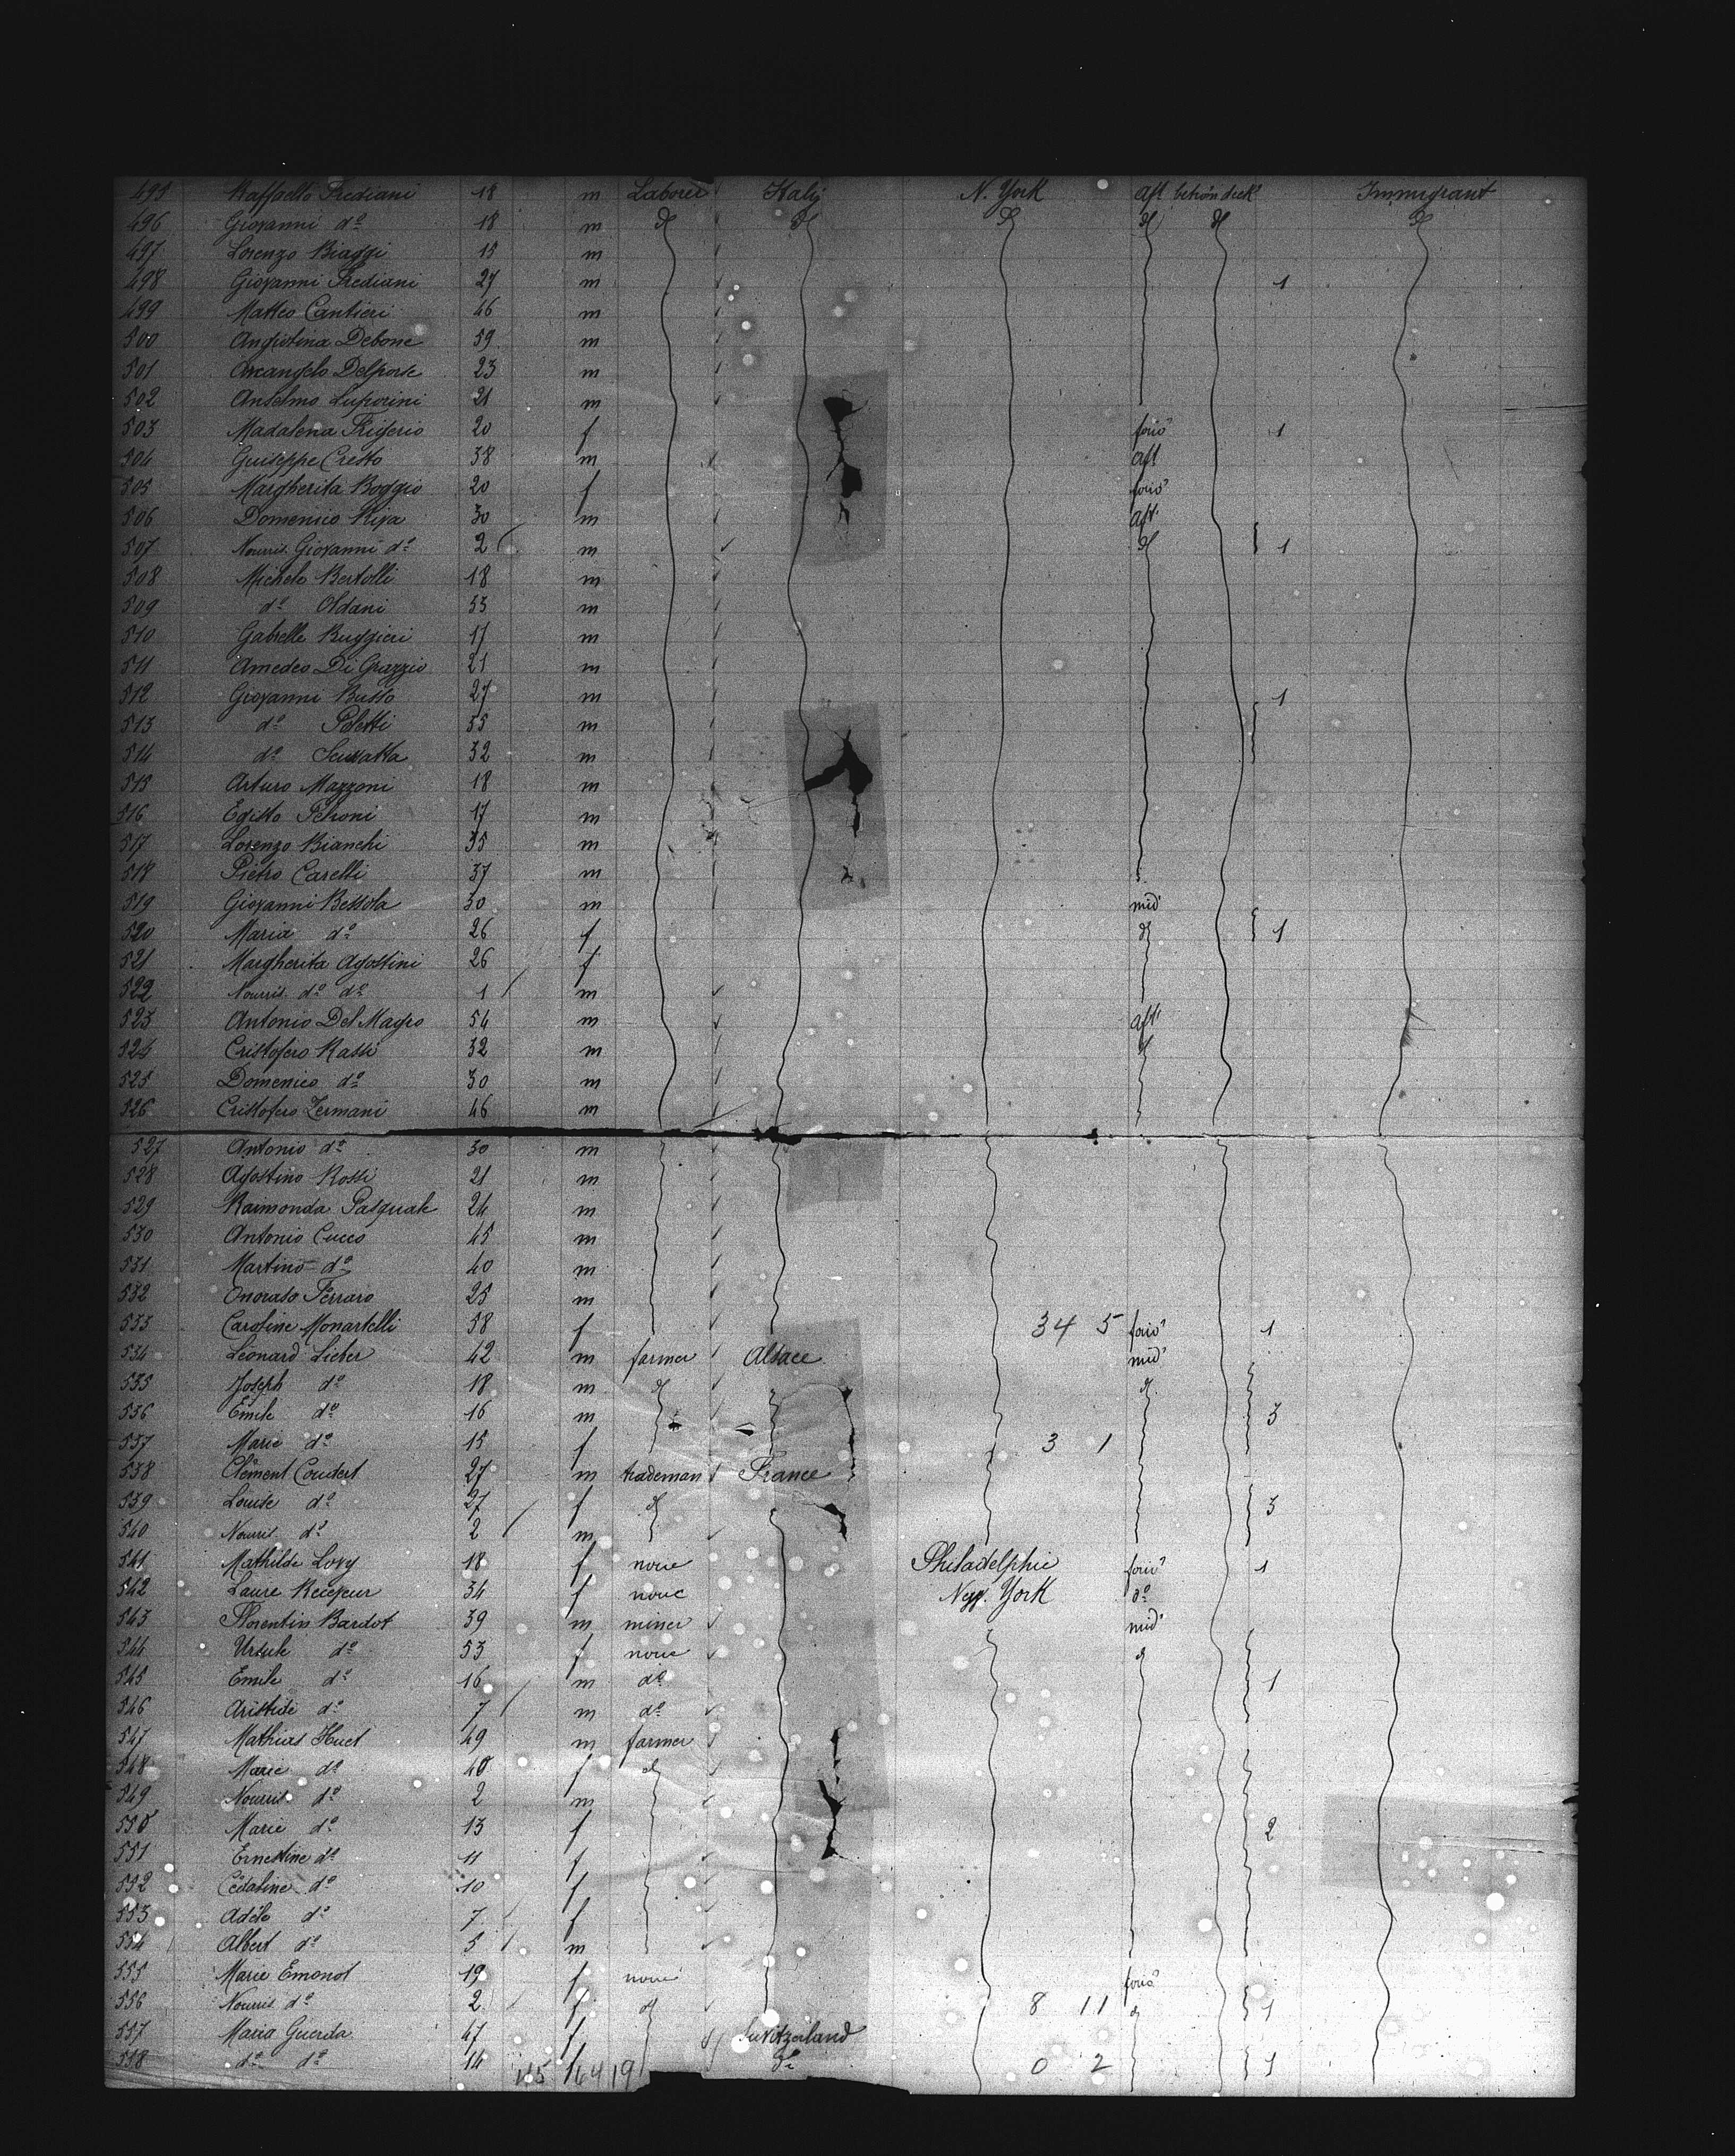 495 Raffaello Frediani 18 m Laborer Italy N. York Aft betw'n deck Immigrant
496 Giovanni d° 18 m d° d° d° d° d° d°
497 Lorenzo Biaggi 15 m
498 Giovanni Frediani 27 m 1
499 Matteo Cantieri 46 m
500 Angiolina Debone 59 m
501 Arcangelo Delporte 23 m
502 Anselmo Luporini 21 m
503 Madalena Frigerio 20 f forw^d 1
504 Guiseppe Cresto 38 m Aft
505 Margherita Boggio 20 f forw^d
506 Domenico Ripa 30 m Aft
507 Nourris. Giovanni d° 2 m d° 1
508 Michele Bertolli 18 m
509 d° Oldani 53 m
510 Gabrelle Ruggieri 17 m
511 Amedeo Di Grazzio 21 m
512 Giovanni Busso 27 m 1
513 d° Poletti 55 m
514 d° 32 m
515 Arturo Mazzoni 18 m
516 Egisto Petroni 17 m
517 Lorenzo Bianchi 35 m
518 Pietro Carelli 37 m
519 Giovanni Bessola 30 m mid^
520 Maria d° 26 f d° 1
521 Margherita Agostini 26 f
522 Nourris. d° d° 1 m
523 Antonio Del Magro 54 m Aft
524 Cristofero Rassi 32 m d°
525 Domenico d° 30 m
526 Cristofero Zermani 46 m
527 Antonio d° 30 m
528 Agostino Rossi 21 m
529 Raimonda Pasquale 24 m
530 Antonio Cucco 45 m
531 Martino d° 40 m
532 Onorato Ferraro 25 m
533 Caroline Monartelli 58 f 34 5 forw^d 1
534 Léonard Lieber 42 m farmer Alsace mid^
535 Joseph d° 18 m d° d°
536 Emile d° 16 m 3
537 Marie d° 15 f 3 1
538 Clément Coudert 27 m trademan France
539 Louise d° 27 f d° 3
540 Nourris. d° 2 m
541 Mathilde Levy 18 f none Philadelphie forw^d 1
542 Laure Receveur 34 f none New York d°
543 Florentin Bardot 39 m miner mid^
544 Ursule d° 53 f none d°
545 Emile d° 16 m d° 1
546 Aristide d° 7 m d°
547 Mathias Huet 49 m farmer
548 Marie d° 40 f d°
549 Nourris. d° 2 m
550 Marie d° 13 f 2
551 Ernestine d° 11 f
552 d° 10 f
553 Adèle d° 7 f
554 Albert d° 5 m
555 Marie Emonot 19 f none forw^d
556 Nourris. d° 2 f d° 8 11 d° 1
557 Maria Guerda 47 f Switzerland
558 d° d° 14 f d° 0 2 1